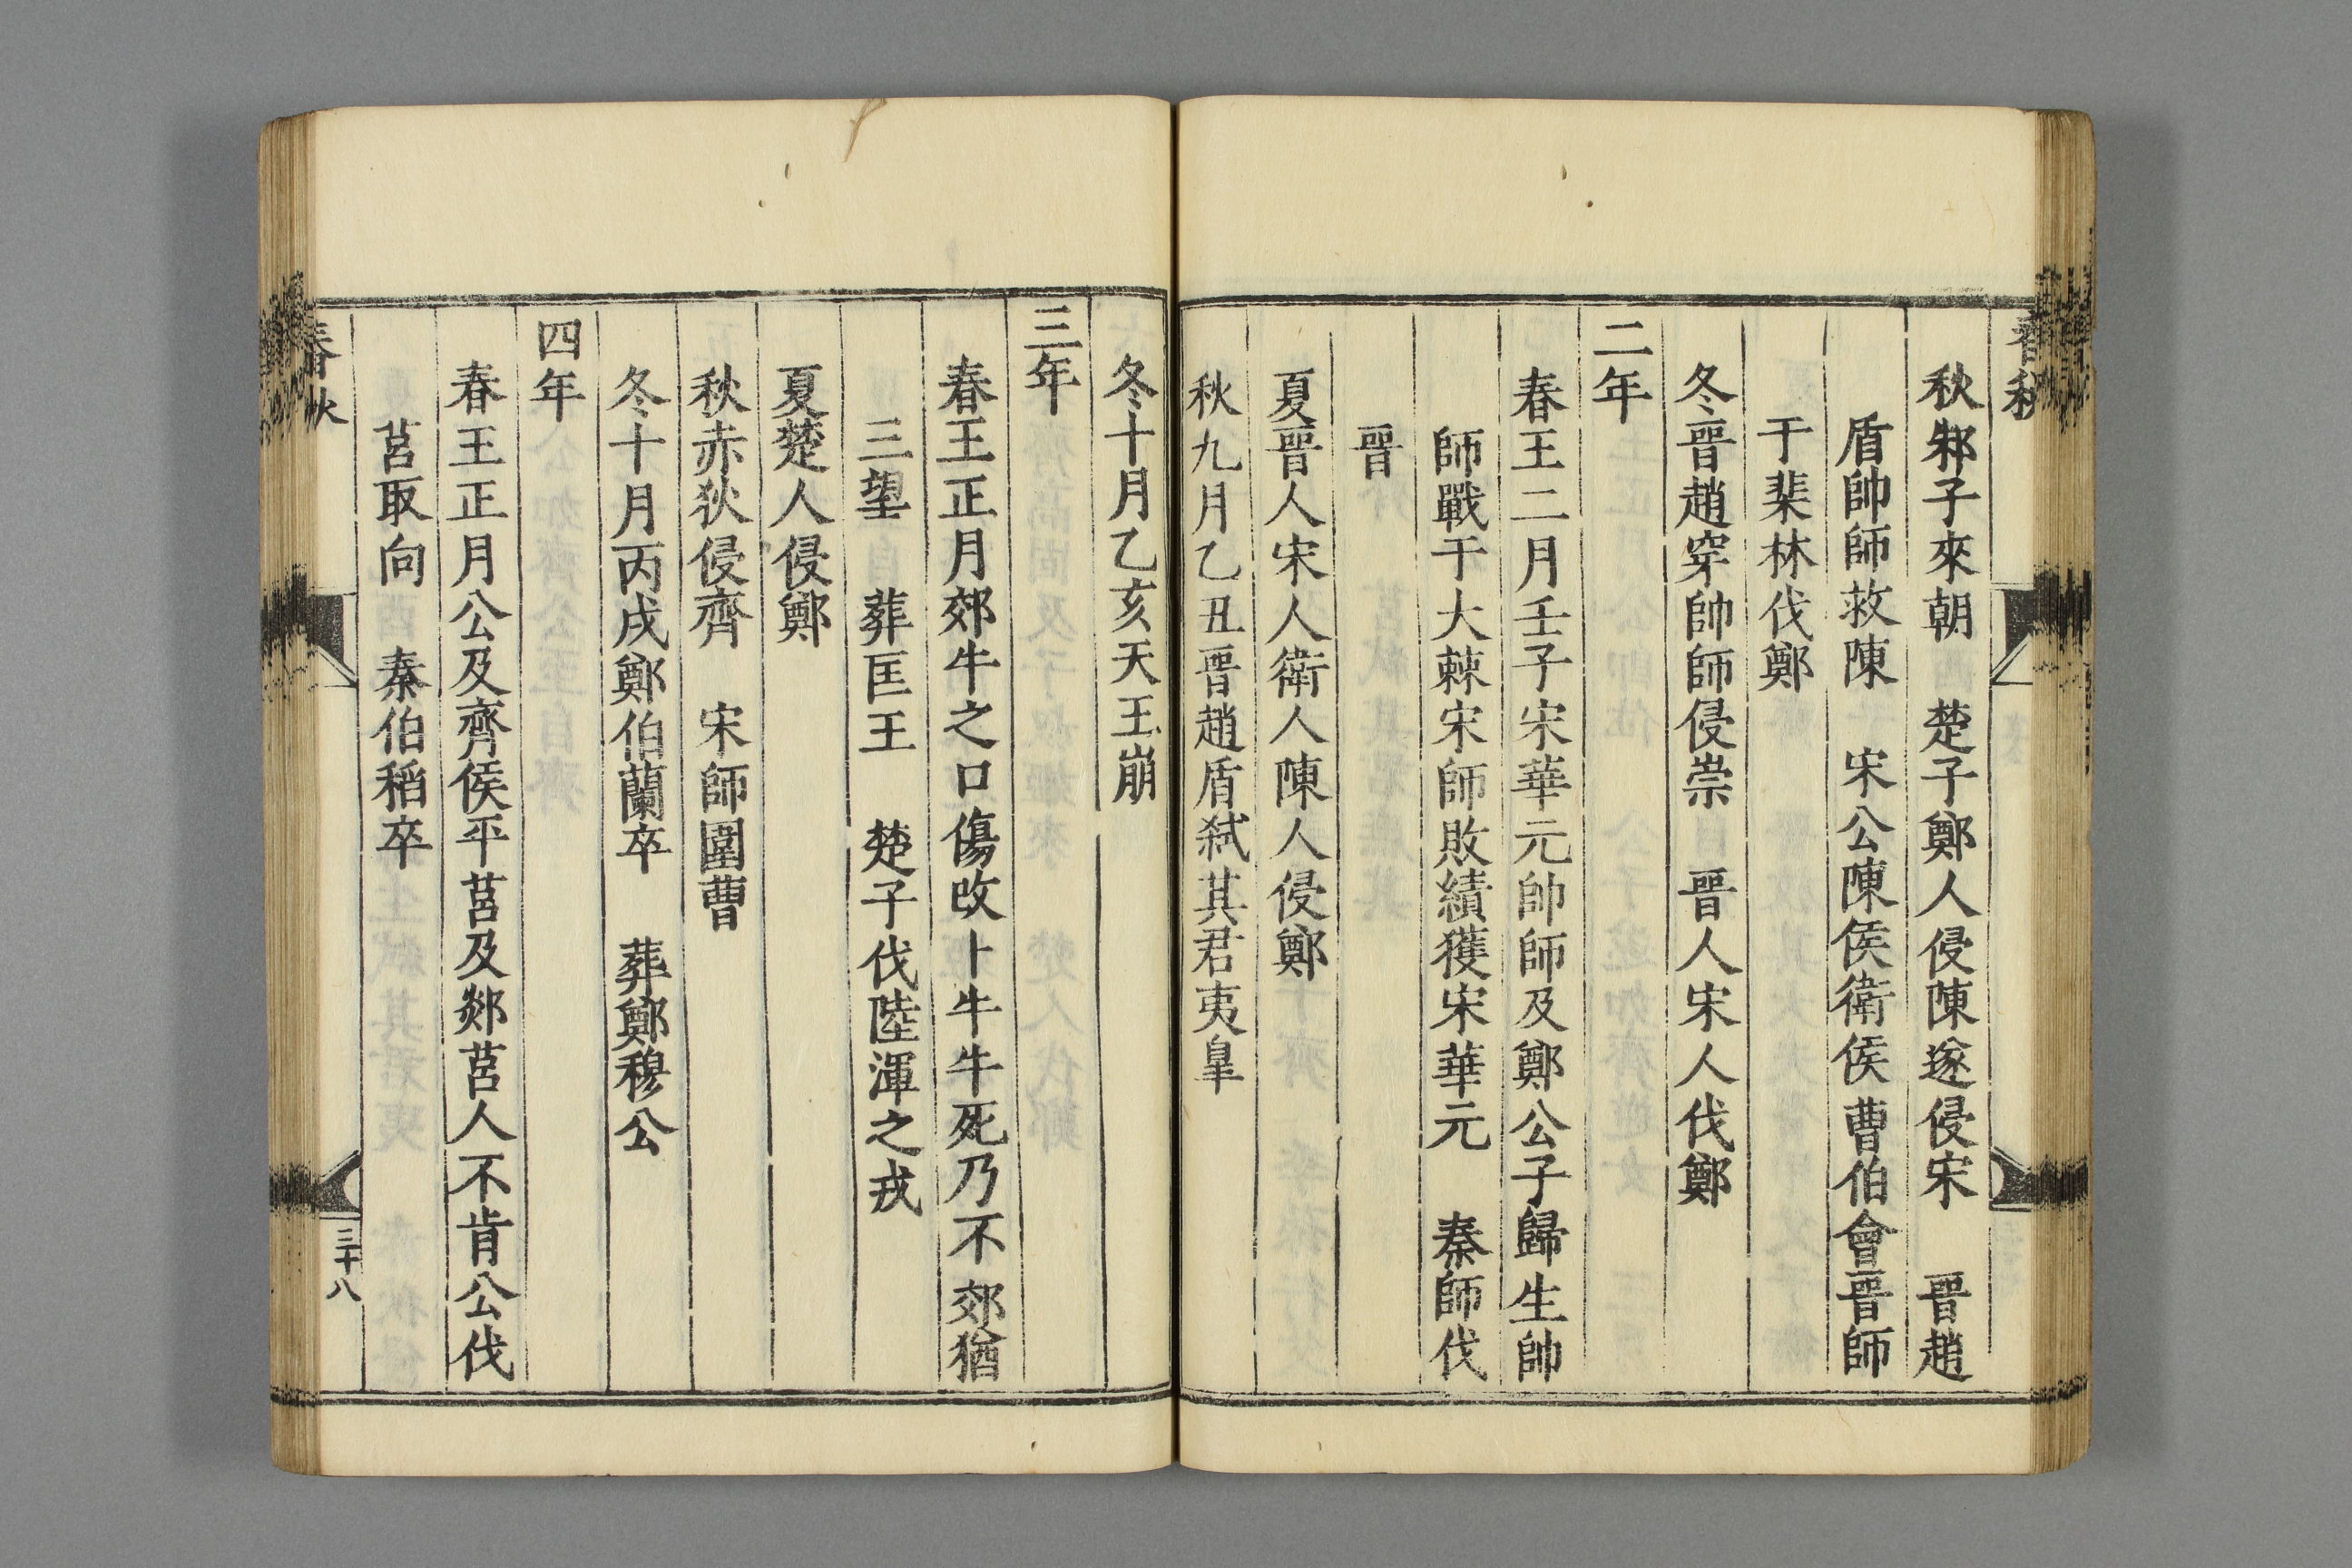 春秋
秋邾子來朝　楚子鄭人侵陳遂侵宋　晉趙
盾帥師救陳　宋公陳侯衛侯曹伯會晉師
于棐林伐鄭
冬晉趙穿帥師侵崇　晉人宋人伐鄭
二年
春王二月壬子宋華元帥師及鄭公子歸生帥
師戰于大棘宋師敗績獲宋華元　秦師伐
晉
夏晉人宋人衛人陳人侵鄭
秋九月乙丑晉趙盾弒其君夷皐
冬十月乙亥天王崩
三年
春王正月郊牛之口傷改卜牛牛死乃不郊猶
三望　葬匡王　楚子伐陸渾之戎
夏楚人侵鄭
秋赤狄侵齊　宋師圍曹
冬十月丙戌鄭伯蘭卒　葬鄭穆公
四年
春王正月公及齊侯平莒及郯莒人不肯公伐
莒取向　秦伯稻卒
春秋
三十八